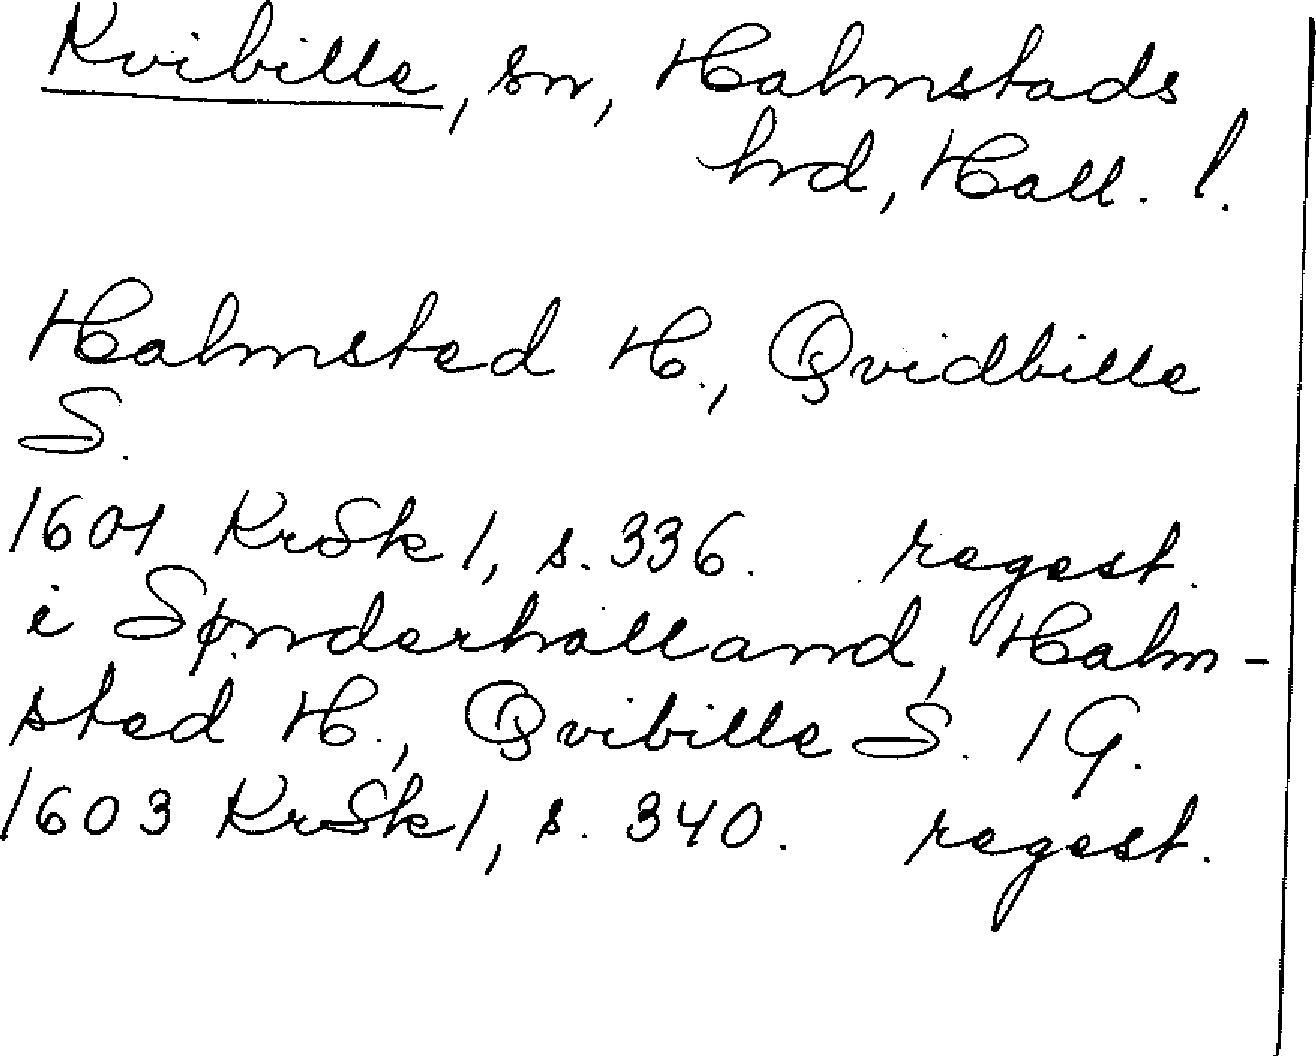 Kvibille, sn, Halmstads
hrd, Hall. l.
Halmsted H., Qvidbille
S.
1601 KrSk 1, s. 336. regest.
i Sønderhalland, Halm-
sted H., Qvibille S. 1 G.
1603 KrSk 1, s. 340. regest.